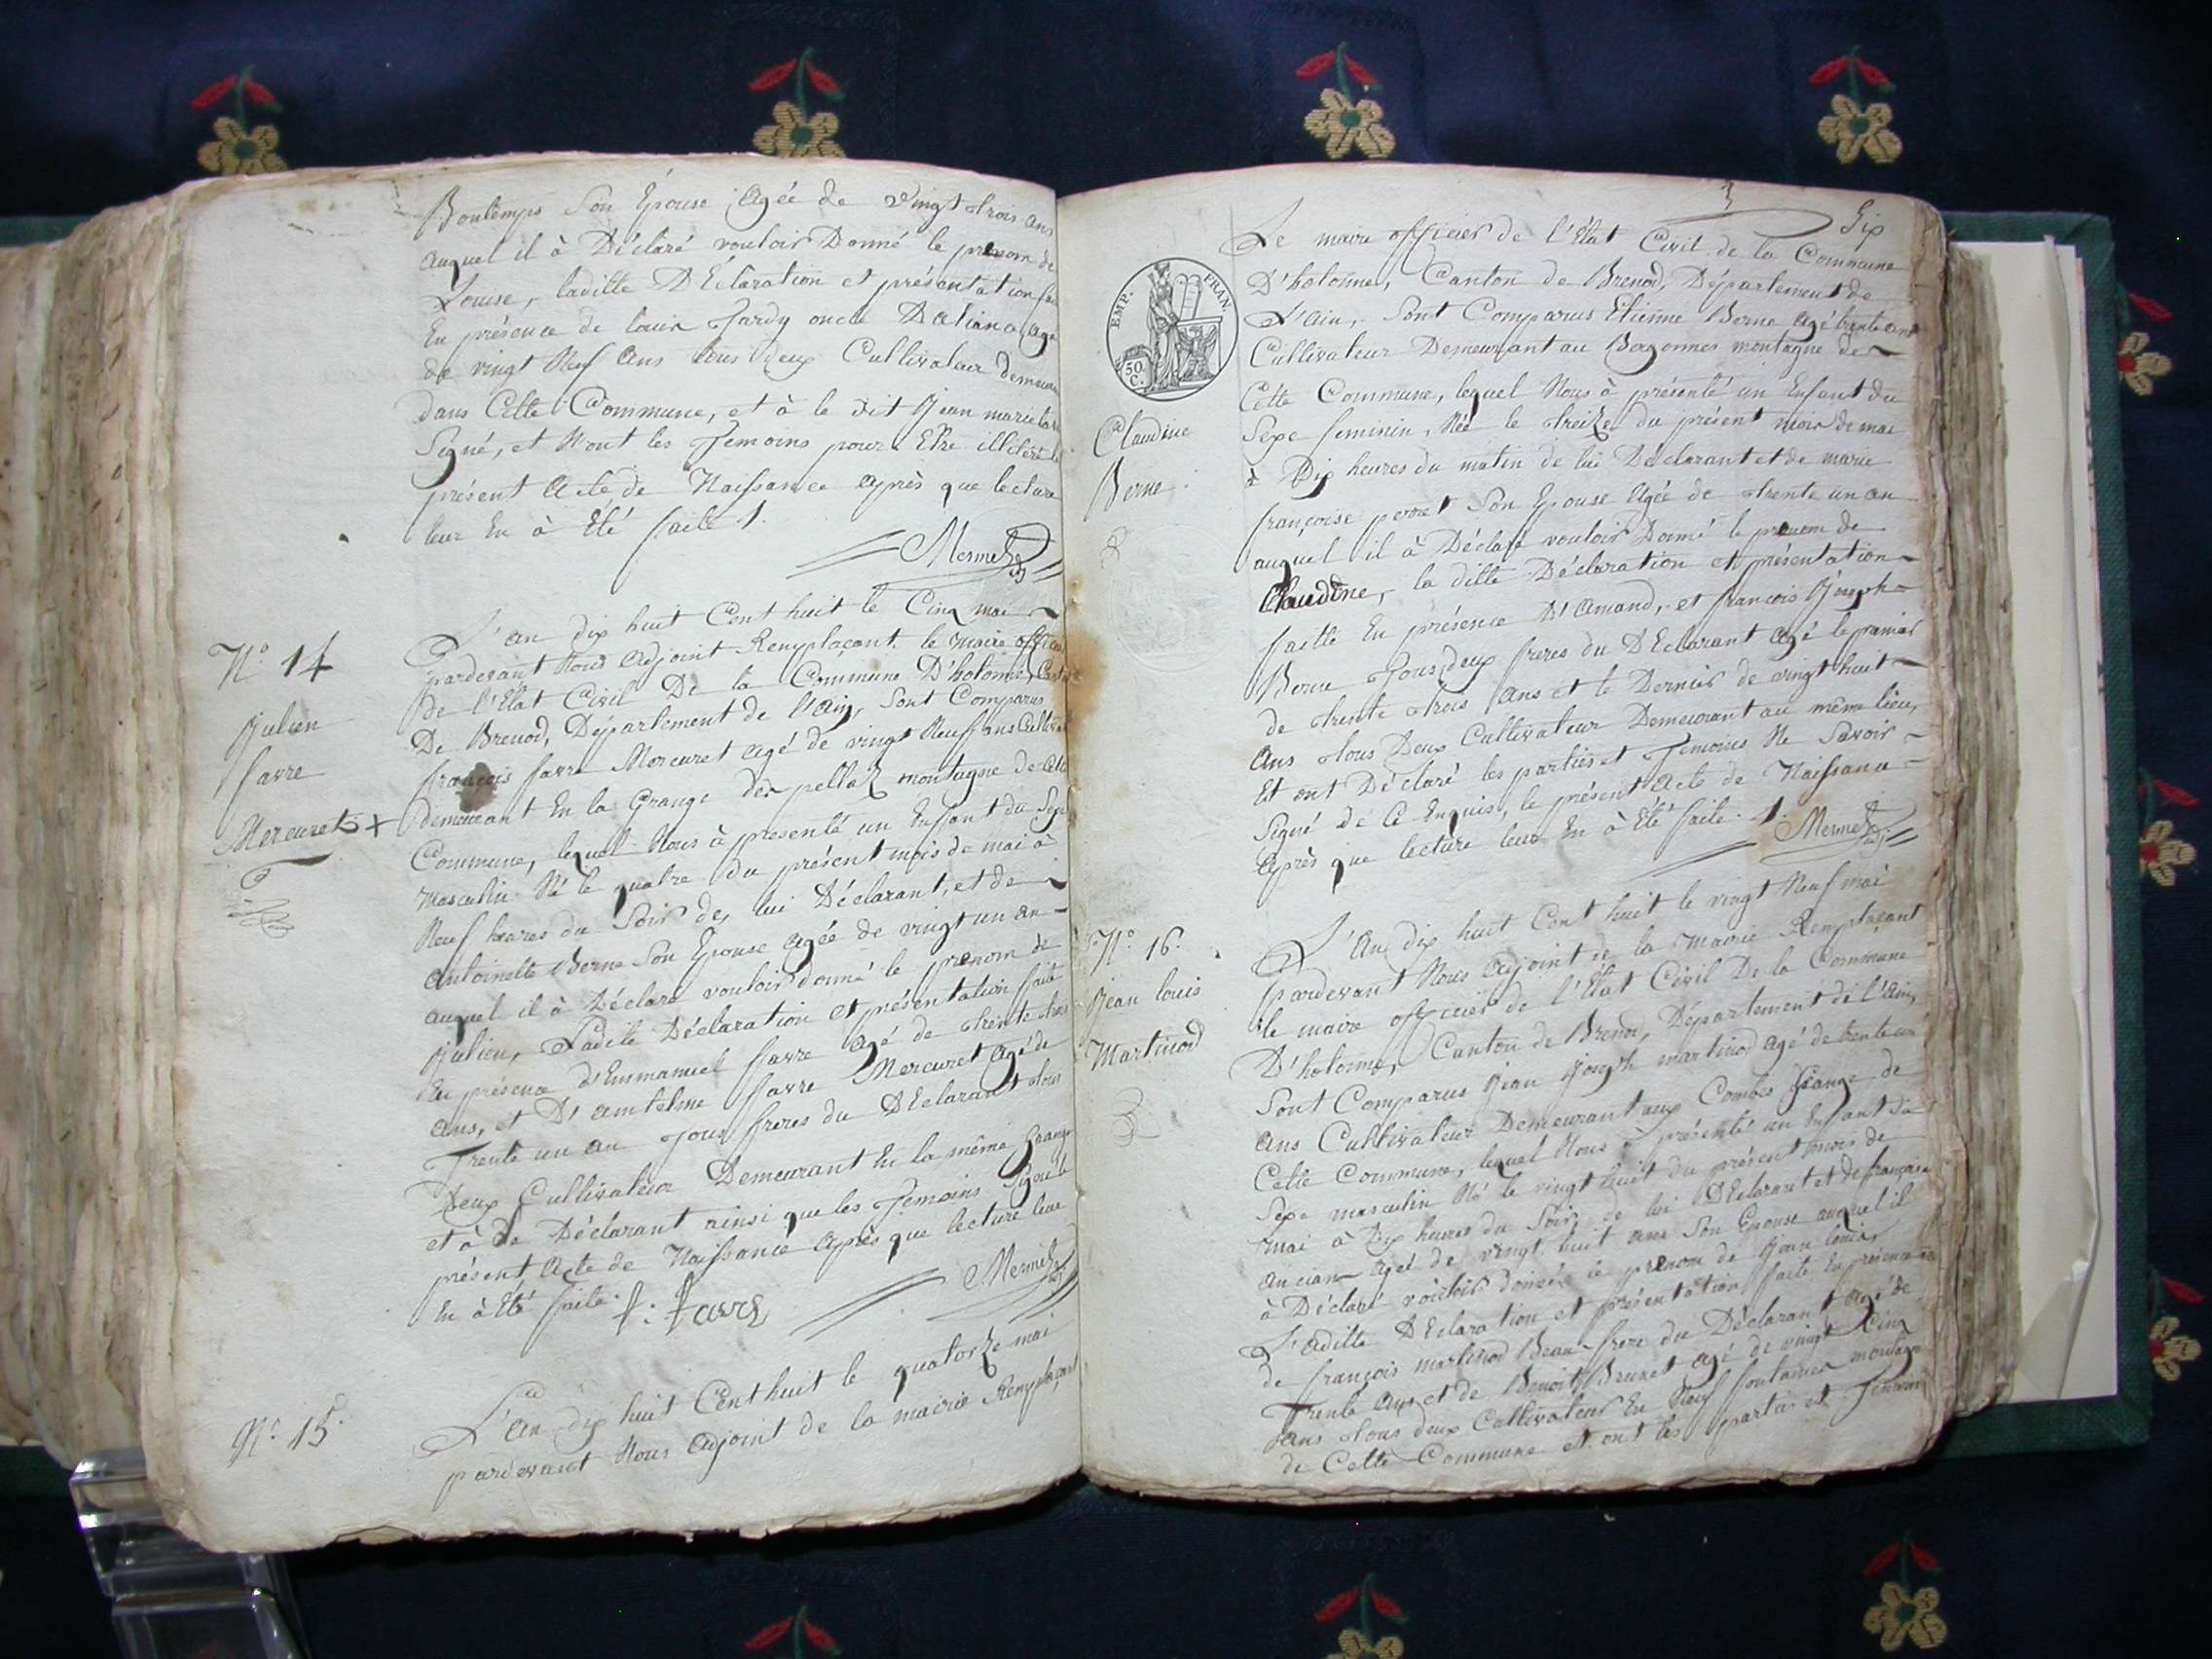 Bontemps Son Épouse, Agée de vingt trois ans
auquel il à Déclaré vouloir Donné le prenom de
Louise, laditte DEclaration et présentation
En présence de louis Jardy oncle agé
de vingt Neuf Ans tous deux Cultivateur demeur
dans Cette Commune, et à le dit Jean marie
Signé, et Nont les Temoins pour Etre illiteré le
présent Acte de Naissance après que lecture
leur En à Eté faite ./.
Mermet
N.º 14
Julien
favre
Mercuret +
L'an dix huit Cent huit le Cinq mai
pardevant Nous Adjoint Remplaçant le maire officier
De l'Etat Civil De la Commune D'hotonne, Canton
De Brenod, Département de l'Ain, Sont Comparus
françois favre Mercuret agé de vingt Neuf ans Cultivat
demeurant En la Grange des pellaz montagne de Cette
Commune, lequel Nous à presenté un Enfant du Sexe
masculin Né le quatre du présent mois de mai à
Neuf heures du Soir de lui Déclarant, et de
antoinette Berne Son Epouse agée de vingt un an
auquel il à Déclaré vouloir donné le prenom de
Julien, Ladite Déclaration et présentation faite
En présence d'Emmanuel favre agé de trente trois
ans, et D'amtelme favre Mercuret agé de
Trente un an Tous freres du DEclarant tous
Deux Cultivateur Demeurant En la même Grange
et à le Déclarant ainsi que les Temoins Signé le
présent Acte de Naissance après que lecture leur
En à Eté faite. f: favre
Mermet
N.º 15.
L'an dix huit Cent huit le quatorze mai
pardevant Nous adjoint de la mairie Remplaçant
Six
Le maire officier de l'Etat Civil de la Commune
D'hotonne, Canton de Brenod, Département de
L'ain, Sont Comparus Etienne Berne agé trente ans
EMP. FRAN.
50 C.
Cultivateur Demeurant au Bergonnes montagne de
Cette Commune, lequel Nous à présenté un Enfant du
Claudine
Berne
Sexe feminin Née le treize du présent mois de mai
à Dix heures du matin de lui Déclarant et de marie
françoise perret Son Epouse Agée de trente un an
auquel il à Déclaré vouloir Donné le prenom de
Claudine, la ditte Déclaration et présentation
faitte En présence D'Amand, et françois Joseph
Berne Tous deux freres du DEclarant agé le premier
de trente trois ans et le Dernier de vingt huit
Ans tous Deux Cultivateur Demeurant au même lieu,
Et ont Déclaré les parties et Temoins Ne Savoir
Signé de Ce Enquis, le présent Acte de Naissance
après que lecture leur En à Eté faite ./.
Mermet
N.º 16.
Jean louis
Martinod
L'An dix huit Cent huit le vingt Neuf mai
pardevant Nous Adjoint de la Mairie Remplaçant
le maire officier de l'Etat Civil De la Commune
D'hotonne, Canton de Brenod, Département de l'Ain,
Sont Comparus Jean Joseph martinod agé de trente un
ans Cultivateur Demeurant aux Combes Grange de
Cette Commune, lequel Nous à présenté un Enfant du
Sexe masculin Né le vingt huit du présent mois de
mai à Dix heures du Soir, de lui DEclarant et de françoise
ancian agée de vingt huit ans Son Epouse auquel il
à Déclaré vouloir donné le prenom de Jean louis,
L'aditte DEclaration et présentation faite En présence
de françois martinod Beau frere du Déclarant agé de
Trente ans et de Benoit Brunet agé de vingt Cinq
ans tous deux Cultivateur En Neuf fontaines montagne
de Cette Commune et ont les parties et Temoins